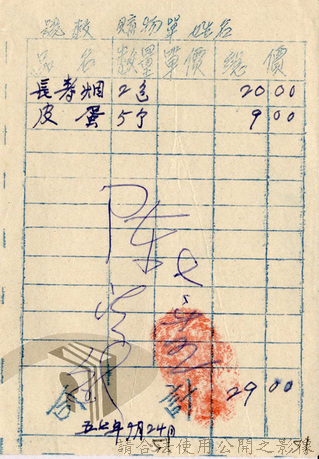 號數 購物單 姓名
品名 數量 單價 總價
長壽烟 2包 20 00
皮蛋 5个 9 00
合計 29 00
五七年9月24日
請合法使用公開之影像